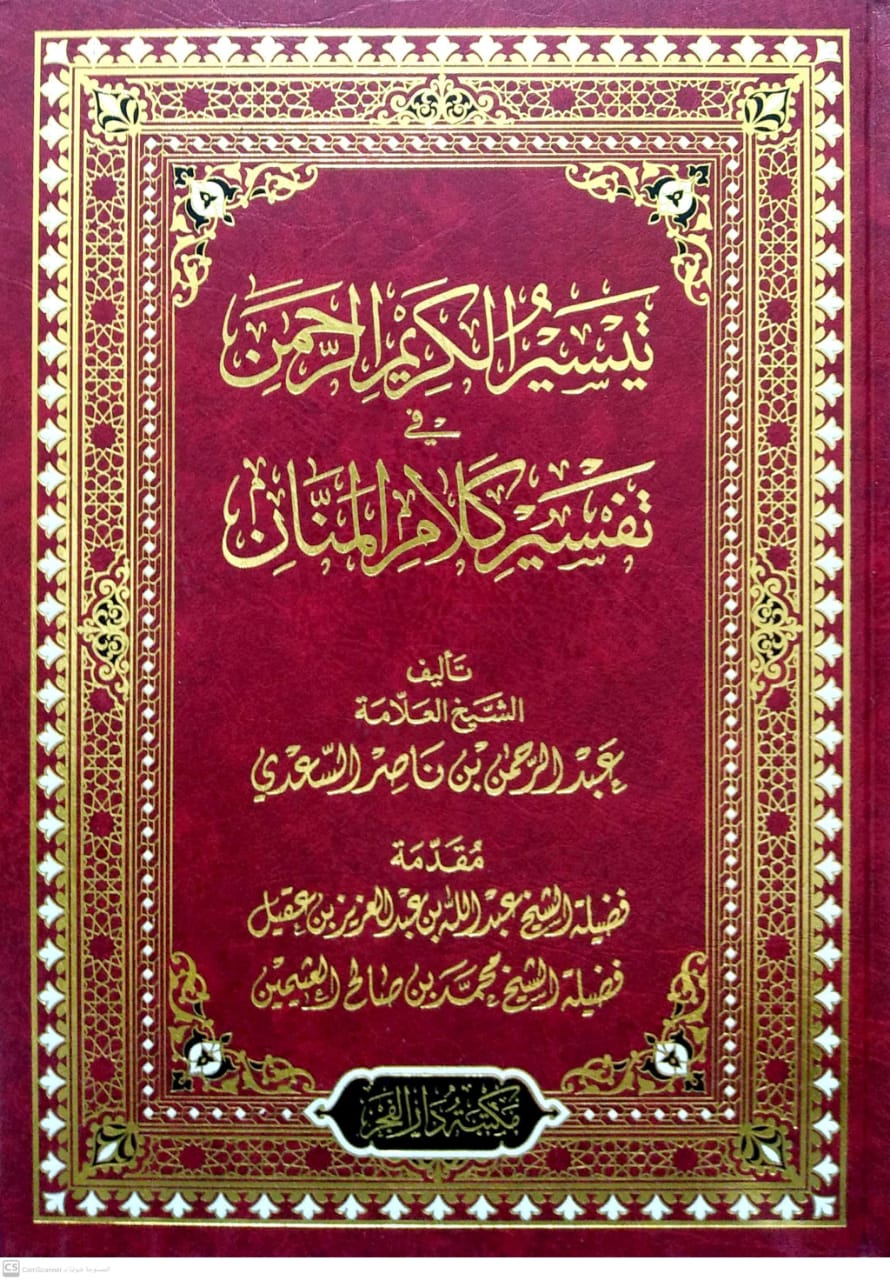 تَيْسِيرُ الكَرِيمِ الرَّحْمَنِ
في
تَفْسِيرِ كَلَامِ المَنَّانِ
تأليف
الشَّيخ العَلّامَة
عَبْد الرَّحمن بْن نَاصِر السَّعْدي
مُقَدّمَة
فضيلة الشيخ عبد الله بن عبد العزيز بن عقيل
فضيلة الشيخ محمّد بن صالح العثيمين
مَكتبَة دَار الفَجر
CS CamScanner